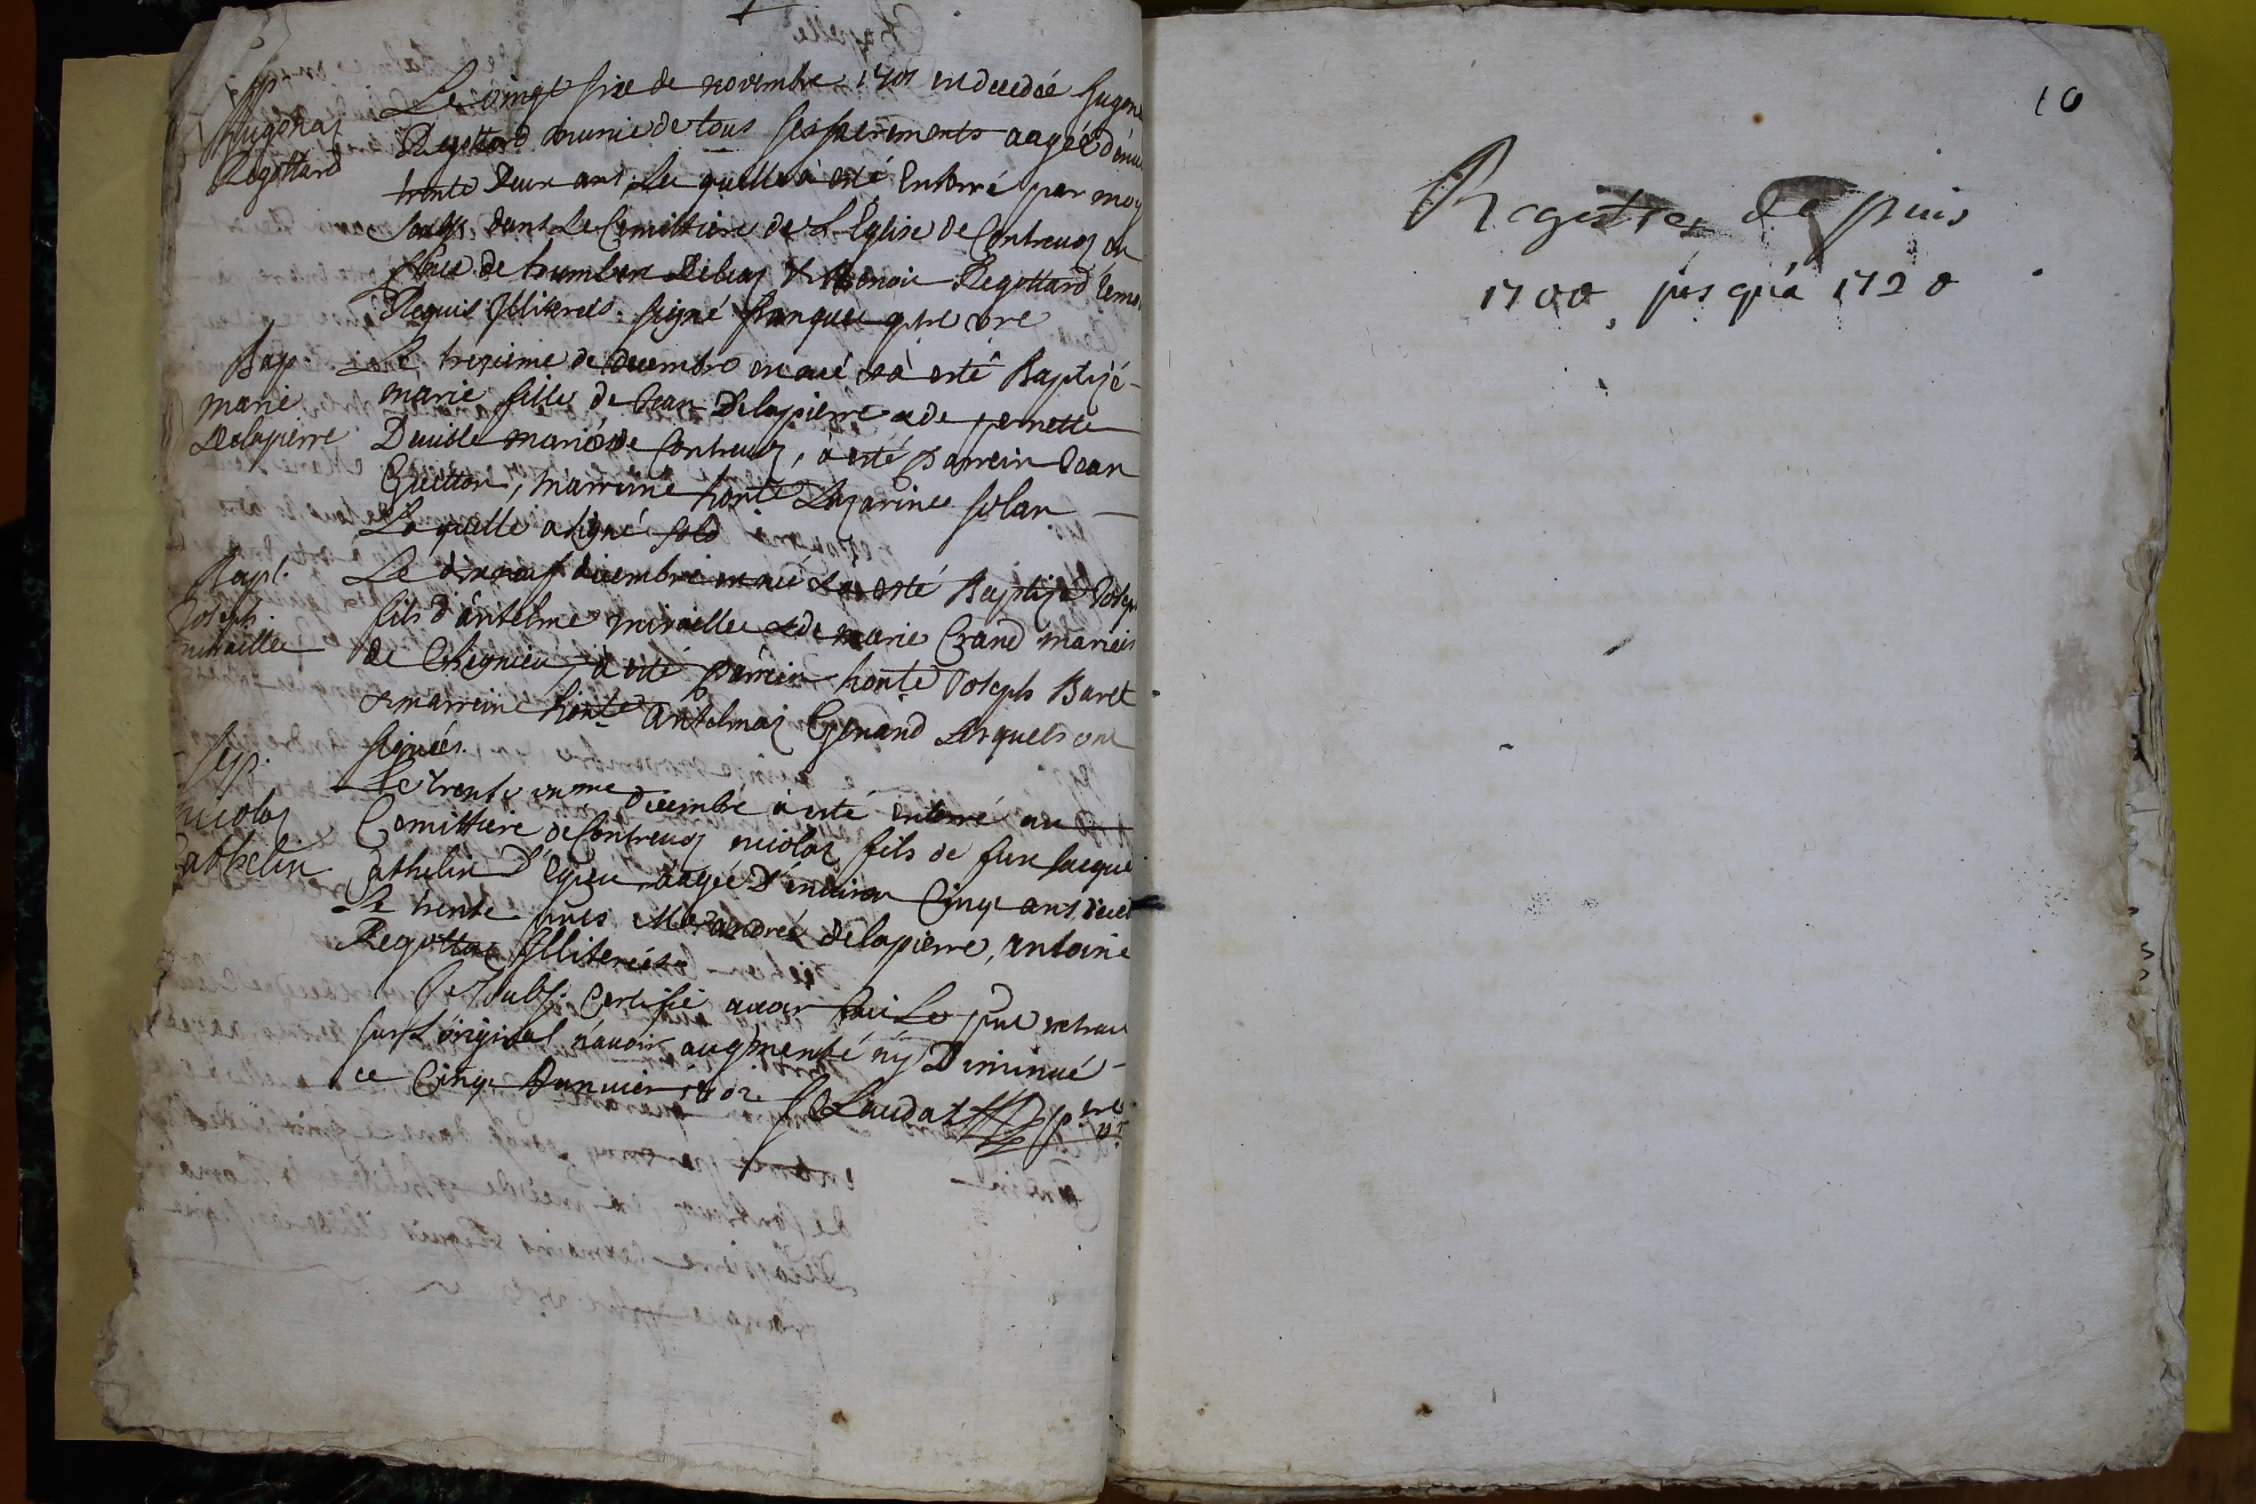 Sep.
hugonaz
Regottard
Le vingt six de novembre 1701 est decedée hugon
Regottard munie de tous ses sacrements aagée d'envi
trente deux ans, La quelle à esté Enterré par moy
soubs. dans Le Cemittiere de L'Eglise de Contreuoz en
pnce de humber & Benoit Regottard temo
Requis Illiterés. signé
Bap.
marie
Delapierre
Le trezieme de decembre est né & à esté Baptizé
marie fille de Jean Delapierre & de pernette
mariés de Contreuoz, à esté parrein Jean
Guitton, marreine honte Lazarine
La quelle a signé
Bapt.
Joseph
miraillee
Le dixneuf decembre est né & à esté Baptizé Joseph
fils d'antelme miraillee & de marie mariés
de Cheignieu, à esté parrein honte Joseph Baret
& marreine honte antelmaz Genand Lesquels ont
signés.
Sep.
nicolaz
Cathelin
Le trente un me decembre à esté enterré au
Cemittiere de Contreuoz nicolaz fils de feu Jacque
Cathelin d'Egieu aagée d'environ Cinq ans, deced
Le trente pnts andrée delapierre, antoine
Regottaz Illiterés
Je soubs. Certifie avoir fait Le pnt extrait
sur L'original n'avoir augmenté ny Diminué
ce Cinq Januier 1702 Laudat
10
Registre de puis
1700 jusqu'a 1720